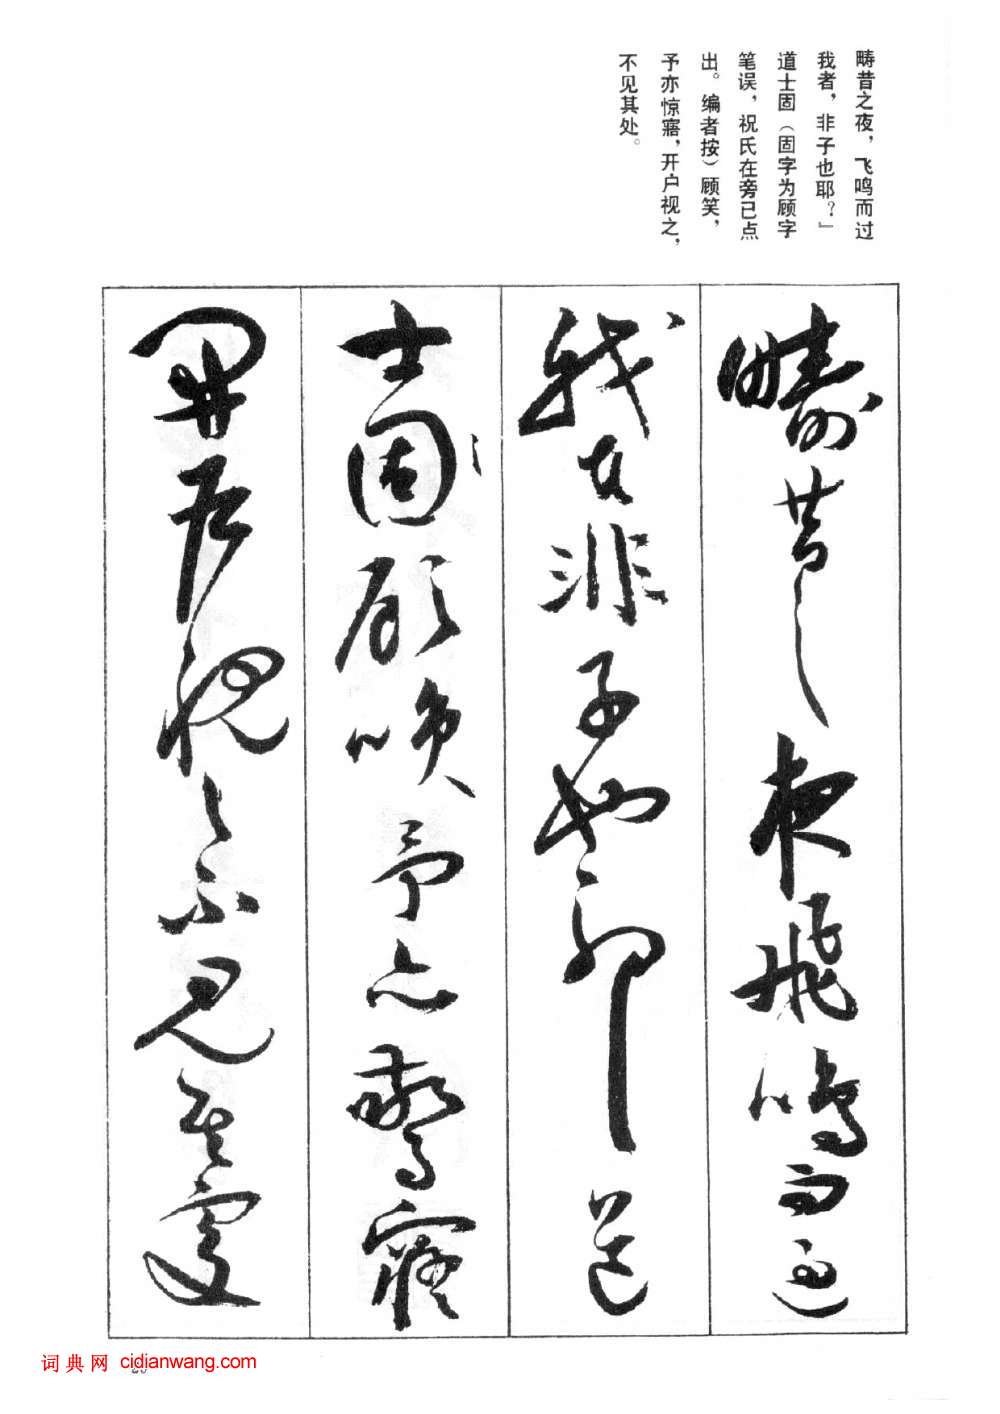 畴昔之夜，飞鸣而过
我者，非子也耶？」
道士固（固字为顾字
笔误，祝氏在旁已点
出。编者按）顾笑，
予亦惊寤，开户视之，
不见其处。
畴昔之夜飞鸣而过
我者非子也耶道
士固顾笑予亦惊寤
开户视之不见其处
词典网 cidianwang.com